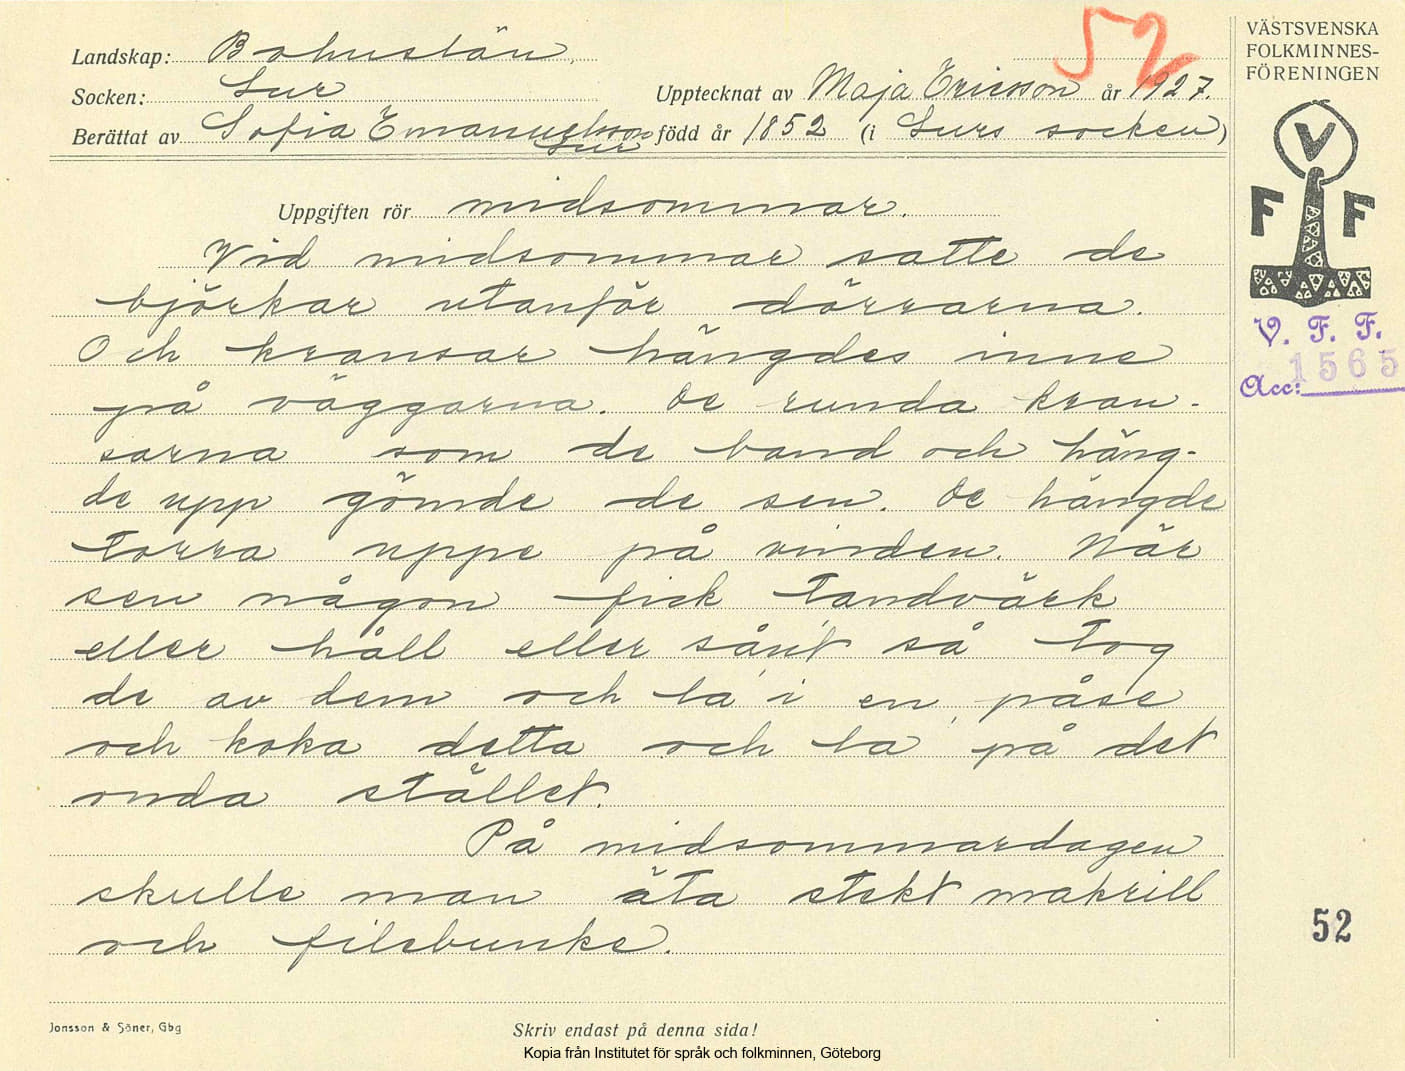 52
VÄSTSVENSKA
FOLKMINNES-
FÖRENINGEN
Landskap: Bohuslän.
Socken: Lur
Upptecknat av Maja Ericsson år 1927.
Berättat av Sofia Emanuelsson född år 1852 (i Lurs socken)
Lur
V
F F
Uppgiften rör midsommar.
Vid midsommar satte de
björkar utanför dörrarna.
Och kransar hängdes inne
på väggarna. De runda kran-
sarna som de band och häng-
de upp gömde de sen. De hängde
torra uppe på vinden. När
sen någon fick tandvärk
eller håll eller sånt så tog
de av dem och la' i en påse
och koka detta och la på det
onda stället.
På midsommardagen
skulle man äta stekt makrill
och filebunke.
V. F. F.
Acc: 1565
52
Jonsson & Söner, Gbg
Skriv endast på denna sida!
Kopia från Institutet för språk och folkminnen, Göteborg